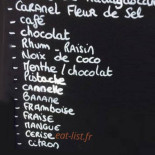 - CARAMEL Fleur de Sel
- café
- chocolat
- Rhum - Raisin
- Noix de coco
- Menthe / chocolat
- Pistache
- cannelle
- BANANE
- FRAMBOISE
- FRAISE
- MANGUE
- CERISE
- CITRON
eat-list.fr